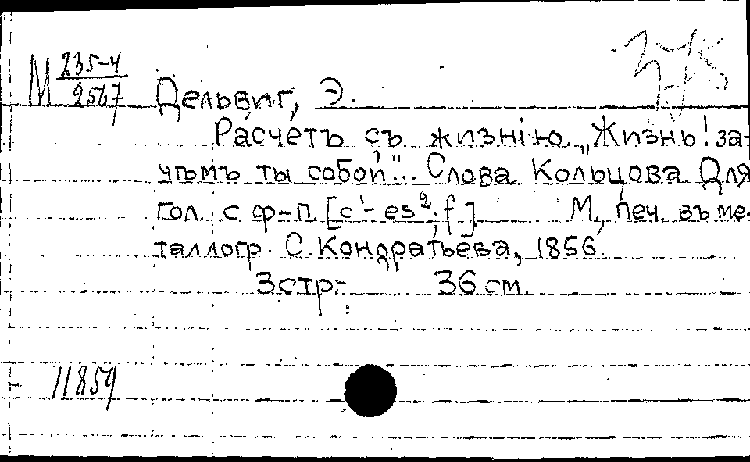 М 235-4
2567
Дельвиг, Э.
Расчетъ съ жизнію. „Жизнь! за-
чѣмъ ты собой"... Слова Кольцова Для
гол. с ф-п. [c¹- es²; f]. М., печ. въ ме-
таллогр. С. Кондратьева, 1856.
3 стр. 36 см.
11859